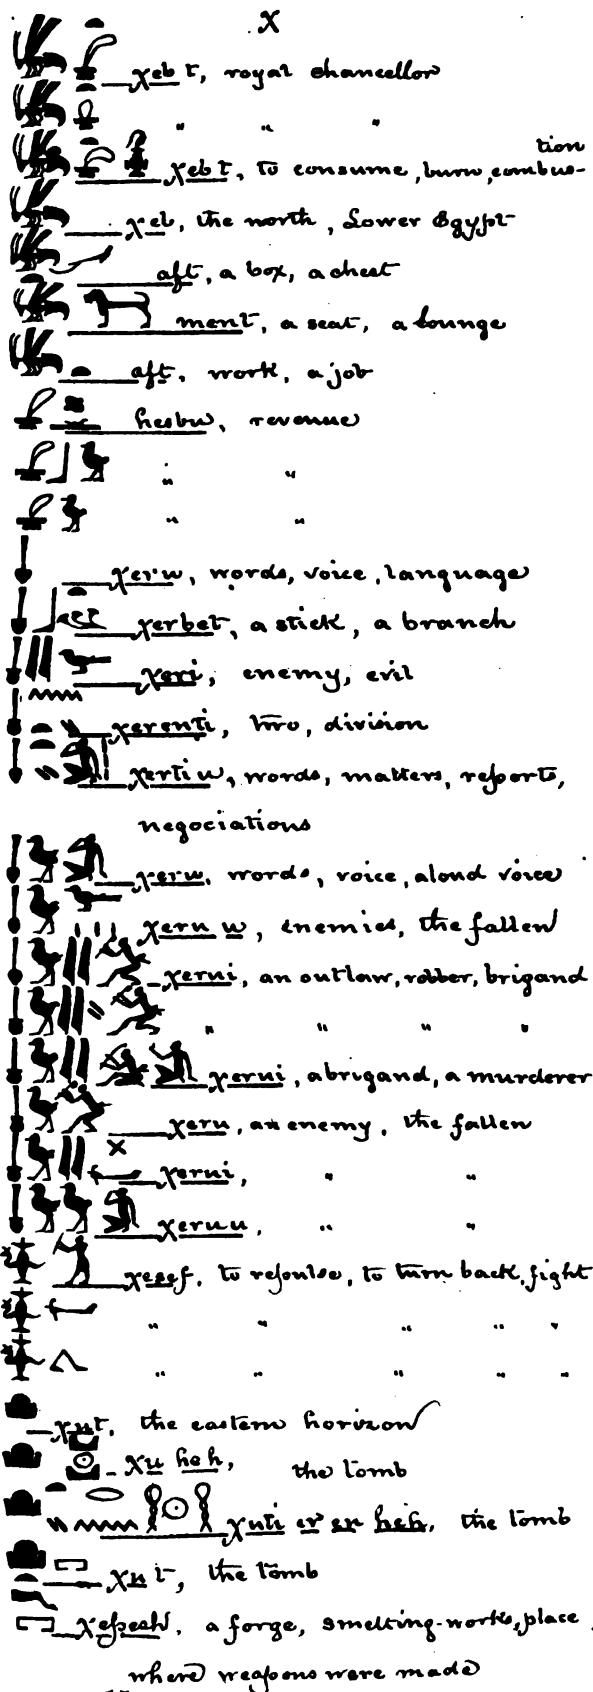 X
χebt, royal chancellor
" " "
tion
χebt, to consume, burn, combus-
χeb, the north, Lower Egypt
aft, a box, a chest
ment, a seat, a lounge
aft, work, a job
hesbu, revenue
" "
" "
χerw, words, voice, language
χerbet, a stick, a branch
χeri, enemy, evil
χerenti, two, division
χertiw, words, matters, reports,
negociations
χerw, words, voice, aloud voice
χeruw, enemies, the fallen
χerui, an outlaw, robber, brigand
" " " "
χerui, a brigand, a murderer
χeru, an enemy, the fallen
χerui, " "
χeruu, " "
χesef, to repulse, to turn back, fight
" " " " "
" " " " "
χut, the eastern horizon
χu heh, the tomb
χuti er en heh, the tomb
χut, the tomb
χepesh, a forge, smelting-works, place
where weapons were made